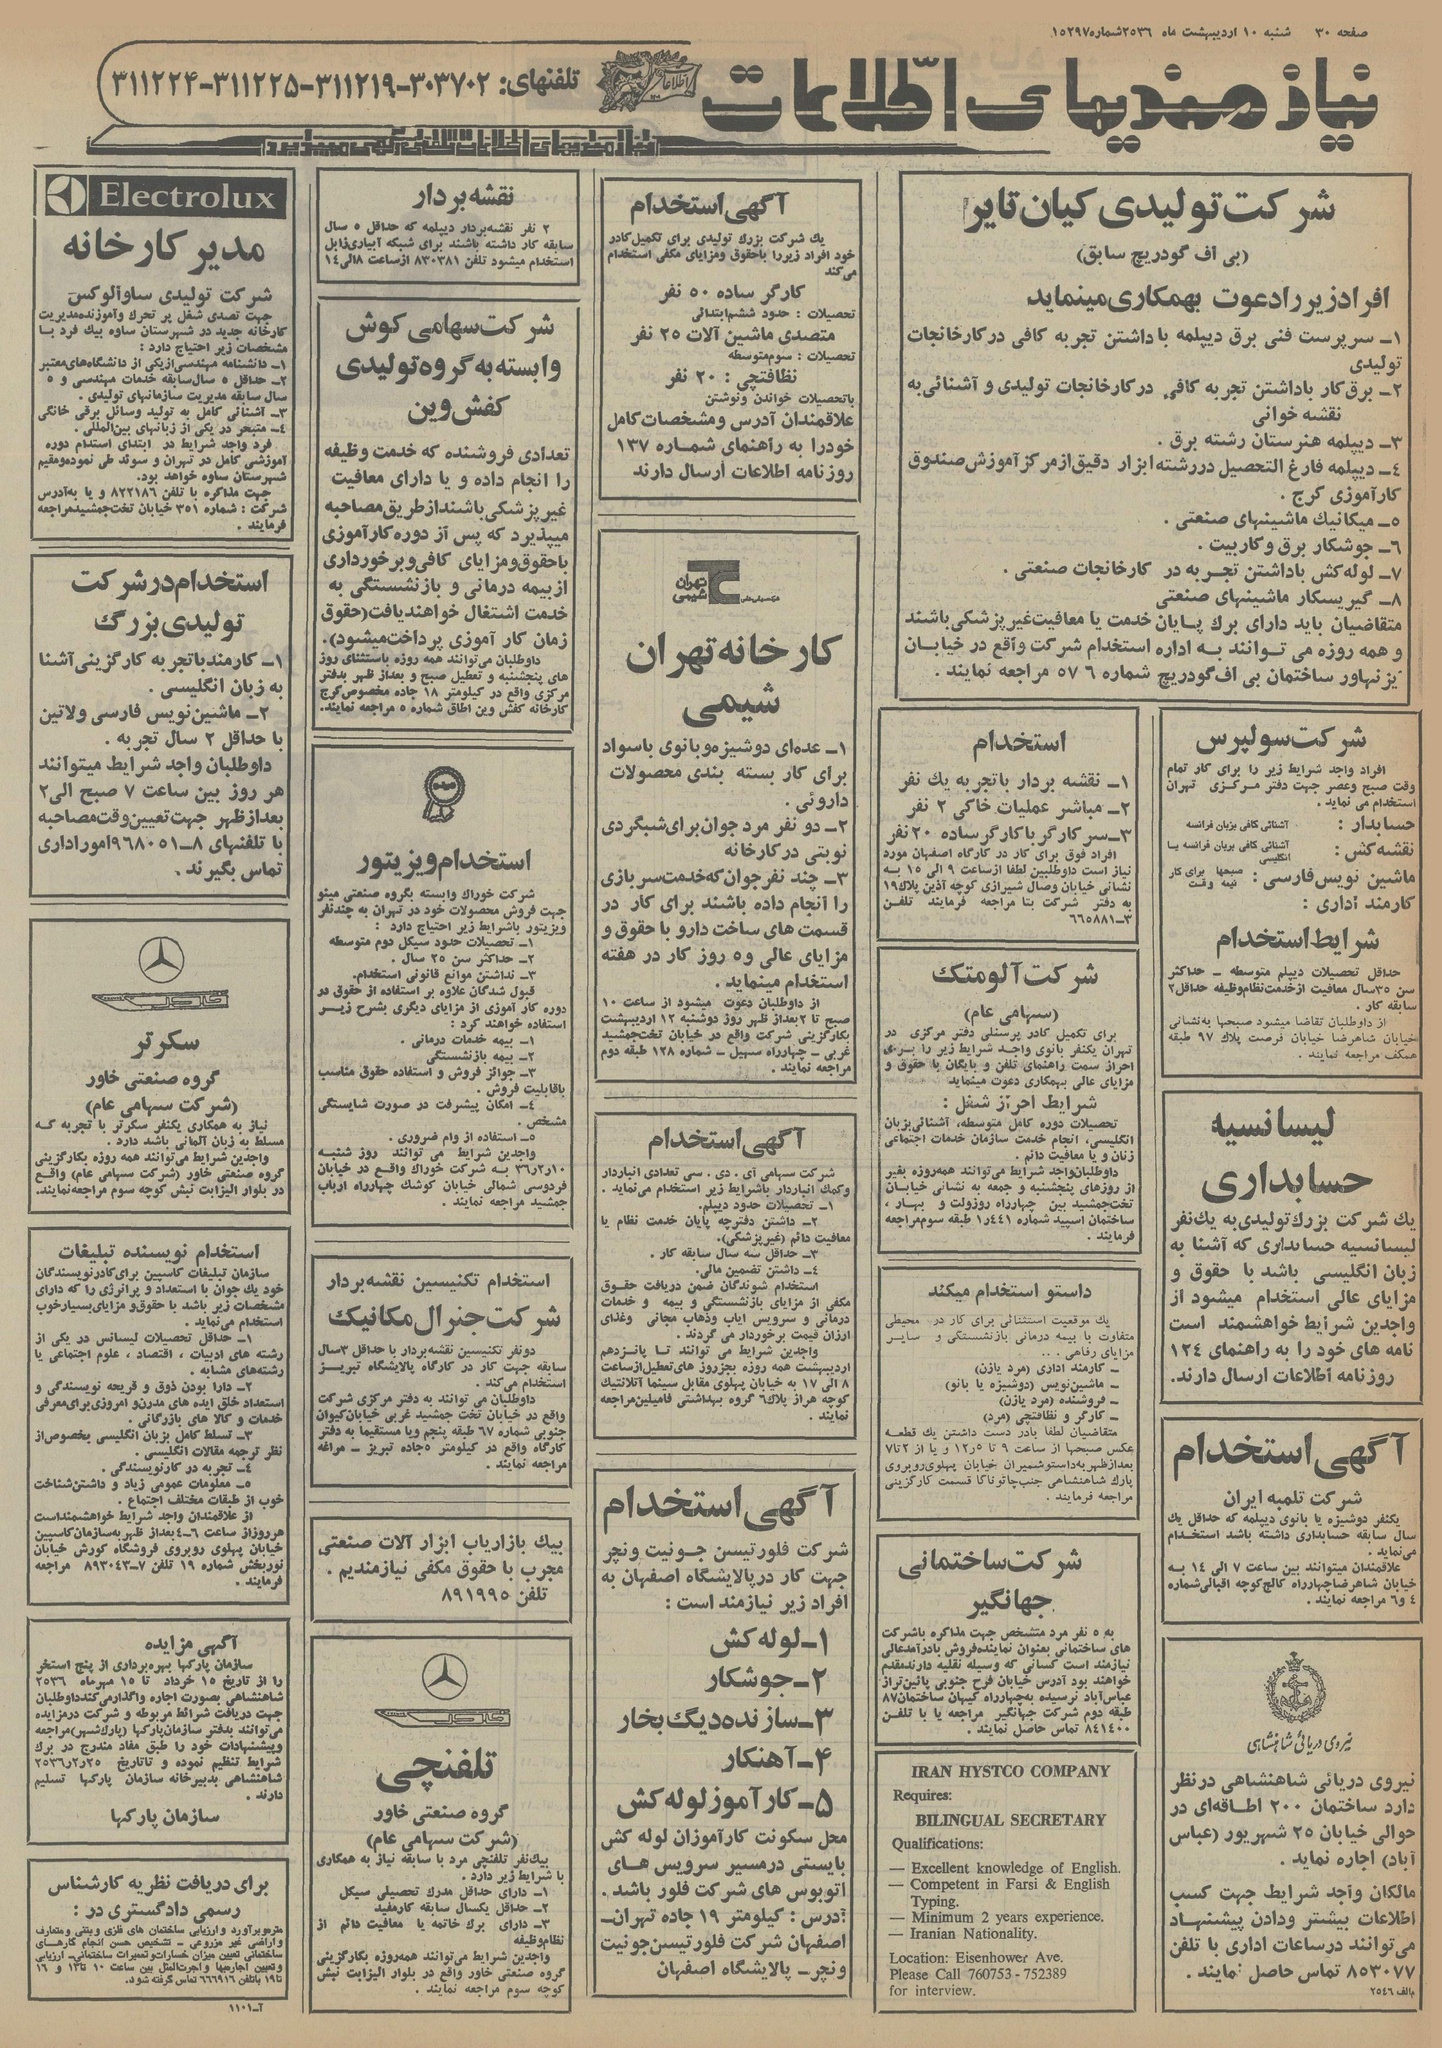 صفحه ۳۰ شنبه ۱۰ اردیبهشت ماه ۲۵۳۶ شماره ۱۵۲۹۷
نیازمندیهای اطلاعات
تلفنهای: ۳۰۳۷۰۲-۳۱۱۲۱۹-۳۱۱۲۲۵-۳۱۱۲۲۴
نیازمندیهای اطلاعات تلفنی آگهی میپذیرد
شرکت تولیدی کیان تایر
(بی اف گودریچ سابق)
افراد زیر را دعوت بهمکاری مینماید
۱ــ سرپرست فنی برق دیپلمه با داشتن تجربه کافی در کارخانجات
تولیدی
۲ــ برق کار باداشتن تجربه کافی در کارخانجات تولیدی و آشنائی به
نقشه خوانی
۳ــ دیپلمه هنرستان رشته برق .
۴ــ دیپلمه فارغ التحصیل در رشته ابزار دقیق از مرکز آموزش صندوق
کارآموزی کرج .
۵ــ میکانیک ماشینهای صنعتی .
۶ــ جوشکار برق و کاربیت .
۷ــ لوله کش باداشتن تجربه در کارخانجات صنعتی .
۸ــ گیریسکار ماشینهای صنعتی
متقاضیان باید دارای برگ پایان خدمت یا معافیت غیرپزشکی باشند
و همه روزه می توانند به اداره استخدام شرکت واقع در خیابان
آیزنهاور ساختمان بی اف گودریچ شماره ۵۷۶ مراجعه نمایند .
شرکت سولپرس
افراد واجد شرایط زیر را برای کار تمام
وقت صبح وعصر جهت دفتر مرکزی تهران
استخدام می نماید .
حسابدار : آشنائی کافی بزبان فرانسه
نقشه کش : آشنائی کافی بزبان فرانسه یا
انگلیسی
ماشین نویس فارسی : صبحها برای کار
نیمه وقت
کارمند اداری :
شرایط استخدام
حداقل تحصیلات دیپلم متوسطه ــ حداکثر
سن ۳۵سال معافیت ازخدمت نظام وظیفه حداقل ۲
سابقه کار .
از داوطلبان تقاضا میشود صبحها به نشانی
خیابان شاهرضا خیابان فرصت پلاک ۹۷ طبقه
همکف مراجعه نمایند .
لیسانسیه
حسابداری
یک شرکت بزرگ تولیدی به یک نفر
لیسانسیه حسابداری که آشنا به
زبان انگلیسی باشد با حقوق و
مزایای عالی استخدام میشود از
واجدین شرایط خواهشمند است
نامه های خود را به راهنمای ۱۲۴
روزنامه اطلاعات ارسال دارند.
آگهی استخدام
شرکت تلمبه ایران
یکنفر دوشیزه یا بانوی دیپلمه که حداقل یک
سال سابقه حسابداری داشته باشد استخدام
می نماید .
علاقمندان میتوانند بین ساعت ۷ الی ۱۴ به
خیابان شاهرضا چهارراه کالج کوچه اقبالی شماره
۴ و ۶ مراجعه نمایند .
نیروی دریائی شاهنشاهی
نیروی دریائی شاهنشاهی در نظر
دارد ساختمان ۲۰۰ اطاقه ای در
حوالی خیابان ۲۵ شهریور (عباس
آباد) اجاره نماید .
مالکان واجد شرایط جهت کسب
اطلاعات بیشتر ودادن پیشنهاد
می توانند در ساعات اداری با تلفن
۸۵۳۰۷۷ تماس حاصل نمایند .
م الف ۲۵۴۶
استخدام
۱ــ نقشه بردار باتجربه یک نفر
۲ــ مباشر عملیات خاکی ۲ نفر
۳ــ سرکارگر با کارگر ساده ۲۰ نفر
افراد فوق برای کار در کارگاه اصفهان مورد
نیاز است داوطلبین لطفا ازساعت ۹ الی ۱۵ به
نشانی خیابان وصال شیرازی کوچه آذین پلاک ۱۹
به دفتر شرکت بتا مراجعه فرمایند تلفن
۳ــ۶۶۵۸۸۱
شرکت آلومتک
(سهامی عام)
برای تکمیل کادر پرسنلی دفتر مرکزی در
تهران یکنفر بانوی واجد شرایط زیر را برای
احراز سمت راهنمای تلفن و بایگان با حقوق و
مزایای عالی بهمکاری دعوت مینماید
شرایط احراز شغل :
تحصیلات دوره کامل متوسطه، آشنائی بزبان
انگلیسی، انجام خدمت سازمان خدمات اجتماعی
زنان و یا معافیت دائم .
داوطلبان واجد شرایط می توانند همه روزه بغیر
از روزهای پنجشنبه و جمعه به نشانی خیابان
تخت جمشید بین چهارراه روزولت و بهار ،
ساختمان اسپید شماره ۴۴۱ر۱ طبقه سوم مراجعه
فرمایند .
داستو استخدام میکند
یک موقعیت استثنائی برای کار در محیطی
متفاوت با بیمه درمانی بازنشستگی و سایر
مزایای رفاهی . . .
ــ کارمند اداری (مرد یازن)
ــ ماشین نویس (دوشیزه یا بانو)
ــ فروشنده (مرد یازن)
ــ کارگر و نظافتچی (مرد)
متقاضیان لطفا بادر دست داشتن یک قطعه
عکس صبحها از ساعت ۹ تا ۱۲٫۵ و یا از ۲ تا ۷
بعدازظهر به داستو شمیران خیابان پهلوی روبروی
پارک شاهنشاهی جنب چاتوناگا قسمت کارگزینی
مراجعه فرمایند .
شرکت ساختمانی
جهانگیر
به ۵ نفر مرد متشخص جهت مذاکره باشرکت
های ساختمانی بعنوان نماینده فروش بادرآمد عالی
نیازمند است کسانی که وسیله نقلیه دارند مقدم
خواهند بود آدرس خیابان فرح جنوبی پائین تر از
عباس آباد نرسیده به چهارراه کیهان ساختمان ۸۷
طبقه دوم شرکت جهانگیر مراجعه یا با تلفن
۸۴۱۴۰۰ تماس حاصل نمایند .
IRAN HYSTCO COMPANY
Requires:
BILINGUAL SECRETARY
Qualifications:
— Excellent knowledge of English.
— Competent in Farsi & English
Typing.
— Minimum 2 years experience.
— Iranian Nationality.
Location: Eisenhower Ave.
Please Call 760753 - 752389
for interview.
آگهی استخدام
یک شرکت بزرگ تولیدی برای تکمیل کادر
خود افراد زیر را باحقوق ومزایای مکفی استخدام
می کند
کارگر ساده ۵۰ نفر
تحصیلات : حدود ششم ابتدائی
متصدی ماشین آلات ۲۵ نفر
تحصیلات : سوم متوسطه
نظافتچی : ۲۰ نفر
باتحصیلات خواندن ونوشتن
علاقمندان آدرس و مشخصات کامل
خود را به راهنمای شماره ۱۳۷
روزنامه اطلاعات ارسال دارند
تهران
شیمی
کارخانه تهران
شیمی
۱ــ عده ای دوشیزه و بانوی باسواد
برای کار بسته بندی محصولات
داروئی .
۲ــ دو نفر مرد جوان برای شبگردی
نوبتی در کارخانه
۳ــ چند نفر جوان که خدمت سربازی
را انجام داده باشند برای کار در
قسمت های ساخت دارو با حقوق و
مزایای عالی و ۵ روز کار در هفته
استخدام مینماید .
از داوطلبان دعوت میشود از ساعت ۱۰
صبح تا ۲ بعداز ظهر روز دوشنبه ۱۲ اردیبهشت
بکارگزینی شرکت واقع در خیابان تخت جمشید
غربی ــ چهارراه سهیل ــ شماره ۱۲۸ طبقه دوم
مراجعه نمایند .
آگهی استخدام
شرکت سهامی آی . دی . سی تعدادی انباردار
وکمک انباردار باشرایط زیر استخدام می نماید .
۱ــ تحصیلات حدود دیپلم.
۲ــ داشتن دفترچه پایان خدمت نظام یا
معافیت دائم (غیرپزشکی).
۳ــ حداقل سه سال سابقه کار .
۴ــ داشتن تضمین مالی.
استخدام شوندگان ضمن دریافت حقوق
مکفی از مزایای بازنشستگی و بیمه و خدمات
درمانی و سرویس ایاب وذهاب مجانی وغذای
ارزان قیمت برخوردار می گردند .
واجدین شرایط می توانند تا پانزدهم
اردیبهشت همه روزه بجز روزهای تعطیل از ساعت
۸ الی ۱۷ به خیابان پهلوی مقابل سینما آتلانتیک
کوچه هراز پلاک ۶ گروه بهداشتی فامیلین مراجعه
نمایند .
آگهی استخدام
شرکت فلور تیسن جونیت ونچر
جهت کار در پالایشگاه اصفهان به
افراد زیر نیازمند است :
۱ــ لوله کش
۲ــ جوشکار
۳ــ سازنده دیگ بخار
۴ــ آهنکار
۵ــ کارآموز لوله کش
محل سکونت کارآموزان لوله کش
بایستی در مسیر سرویس های
اتوبوس های شرکت فلور باشد .
آدرس : کیلومتر ۱۹ جاده تهران ــ
اصفهان شرکت فلور تیسن جونیت
ونچر ــ پالایشگاه اصفهان
نقشه بردار
۲ نفر نقشه بردار دیپلمه که حداقل ۵ سال
سابقه کار داشته باشند برای شبکه آبیاری زابل
استخدام میشود تلفن ۸۳۰۳۸۱ ازساعت ۸ الی ۱۴
شرکت سهامی کوش
وابسته به گروه تولیدی
کفش وین
تعدادی فروشنده که خدمت وظیفه
را انجام داده و یا دارای معافیت
غیرپزشکی باشند از طریق مصاحبه
میپذیرد که پس از دوره کارآموزی
باحقوق و مزایای کافی و برخورداری
از بیمه درمانی و بازنشستگی به
خدمت اشتغال خواهند یافت (حقوق
زمان کار آموزی پرداخت میشود).
داوطلبان می توانند همه روزه باستثنای روز
های پنجشنبه و تعطیل صبح و بعداز ظهر بدفتر
مرکزی واقع در کیلومتر ۱۸ جاده مخصوص کرج
کارخانه کفش وین اطاق شماره ۵ مراجعه نمایند.
استخدام ویزیتور
شرکت خوراک وابسته بگروه صنعتی مینو
جهت فروش محصولات خود در تهران به چندنفر
ویزیتور باشرایط زیر احتیاج دارد :
۱ــ تحصیلات حدود سیکل دوم متوسطه
۲ــ حداکثر سن ۲۵ سال .
۳ــ نداشتن موانع قانونی استخدام.
قبول شدگان علاوه بر استفاده از حقوق در
دوره کار آموزی از مزایای دیگری بشرح زیر
استفاده خواهند کرد :
۱ــ بیمه خدمات درمانی .
۲ــ بیمه بازنشستگی
۳ــ جوائز فروش و استفاده حقوق مناسب
باقابلیت فروش .
۴ــ امکان پیشرفت در صورت شایستگی
مشخص .
۵ــ استفاده از وام ضروری .
واجدین شرایط می توانند روز شنبه
۳۶ر۲ر۱۰ به شرکت خوراک واقع در خیابان
فردوسی شمالی خیابان کوشک چهارراه ارباب
جمشید مراجعه نمایند .
استخدام تکنیسین نقشه بردار
شرکت جنرال مکانیک
دونفر تکنیسین نقشه بردار با حداقل ۳سال
سابقه جهت کار در کارگاه پالایشگاه تبریز
استخدام می کند .
داوطلبان می توانند به دفتر مرکزی شرکت
واقع در خیابان تخت جمشید غربی خیابان کیوان
جنوبی شماره ۶۷ طبقه پنجم ویا مستقیما به دفتر
کارگاه واقع در کیلومتر ۵ جاده تبریز ــ مراغه
مراجعه نمایند .
بیک بازاریاب ابزار آلات صنعتی
مجرب با حقوق مکفی نیازمندیم .
تلفن ۸۹۱۹۹۵
خاور
تلفنچی
گروه صنعتی خاور
(شرکت سهامی عام)
بیک نفر تلفنچی مرد با سابقه نیاز به همکاری
با شرایط زیر دارد .
۱ــ دارای حداقل مدرک تحصیلی سیکل
۲ــ حداقل یکسال سابقه کار مفید
۳ــ دارای برک خاتمه یا معافیت دائم از
نظام وظیفه
واجدین شرایط می توانند همه روزه بکارگزینی
گروه صنعتی خاور واقع در بلوار الیزابت نبش
کوچه سوم مراجعه نمایند .
Electrolux
مدیر کارخانه
شرکت تولیدی ساوالوکس
جهت تصدی شغل پر تحرک وآموزنده مدیریت
کارخانه جدید در شهرستان ساوه بیک فرد با
مشخصات زیر احتیاج دارد :
۱ــ دانشنامه مهندسی از یکی از دانشگاه های معتبر
۲ــ حداقل ۵ سال سابقه خدمات مهندسی و ۵
سال سابقه مدیریت سازمانهای تولیدی .
۳ــ آشنائی کامل به تولید وسائل برقی خانگی
۴ــ متبحر در یکی از زبانهای بین المللی .
فرد واجد شرایط در ابتدای استخدام دوره
آموزشی کامل در تهران و سوئد طی نموده و مقیم
شهرستان ساوه خواهد بود.
جهت مذاکره با تلفن ۸۲۲۱۸۶ و یا به آدرس
شرکت : شماره ۳۵۱ خیابان تخت جمشید مراجعه
فرمایند .
استخدام در شرکت
تولیدی بزرگ
۱ــ کارمند باتجربه کارگزینی آشنا
به زبان انگلیسی .
۲ــ ماشین نویس فارسی و لاتین
با حداقل ۲ سال تجربه .
داوطلبان واجد شرایط میتوانند
هر روز بین ساعت ۷ صبح الی ۲
بعداز ظهر جهت تعیین وقت مصاحبه
با تلفنهای ۸ــ۹۶۸۰۵۱ امور اداری
تماس بگیرند .
خاور
سکرتر
گروه صنعتی خاور
(شرکت سهامی عام)
نیاز به همکاری یکنفر سکرتر با تجربه که
مسلط به زبان آلمانی باشد دارد .
واجدین شرایط می توانند همه روزه بکارگزینی
گروه صنعتی خاور (شرکت سهامی عام) واقع
در بلوار الیزابت نبش کوچه سوم مراجعه نمایند.
استخدام نویسنده تبلیغات
سازمان تبلیغات کاسپین برای کادر نویسندگان
خود یک جوان با استعداد و پرانرژی را که دارای
مشخصات زیر باشد با حقوق و مزایای بسیار خوب
استخدام می نماید .
۱ــ حداقل تحصیلات لیسانس در یکی از
رشته های ادبیات ، اقتصاد ، علوم اجتماعی یا
رشته های مشابه .
۲ــ دارا بودن ذوق و قریحه نویسندگی و
استعداد خلق ایده های مدرن و امروزی برای معرفی
خدمات و کالا های بازرگانی .
۳ــ تسلط کامل بزبان انگلیسی بخصوص از
نظر ترجمه مقالات انگلیسی .
۴ــ تجربه در کار نویسندگی .
۵ــ معلومات عمومی زیاد و داشتن شناخت
خوب از طبقات مختلف اجتماع .
از علاقمندان واجد شرایط خواهشمند است
هر روز از ساعت ۶ــ۴ بعداز ظهر به سازمان کاسپین
خیابان پهلوی روبروی فروشگاه کورش خیابان
نوربخش شماره ۱۹ تلفن ۷ــ۸۹۳۰۴۳ مراجعه
فرمایند .
آگهی مزایده
سازمان پارکها بهره برداری از پنج استخر
را از تاریخ ۱۵ خرداد تا ۱۵ مهرماه ۲۵۳۶
شاهنشاهی بصورت اجاره واگذار می کند داوطلبان
جهت دریافت شرائط مربوطه و شرکت در مزایده
می توانند بدفتر سازمان پارکها (پارک شهر) مراجعه
و پیشنهادات خود را طبق مفاد مندرج در برگ
شرایط تنظیم نموده و تا تاریخ ۲۵ر۲ر۲۵۳۶
شاهنشاهی بدبیرخانه سازمان پارکها تسلیم
دارند .
سازمان پارکها
برای دریافت نظریه کارشناس
رسمی دادگستری در :
متره و برآورد و ارزیابی ساختمان های فلزی و بتنی ومتعارف
و اراضی غیر مزروعی ــ تشخیص حسن انجام کارهای
ساختمانی تعیین میزان خسارات و تعمیرات ساختمانی ــ ارزیابی
و تعیین اجاره بها و اجرت المثل بین ساعت ۱۰ تا ۱۳ و ۱۶
تا ۱۹ باتلفن ۶۶۶۹۱۶ تماس گرفته شود.
آــ۱۱۰۱